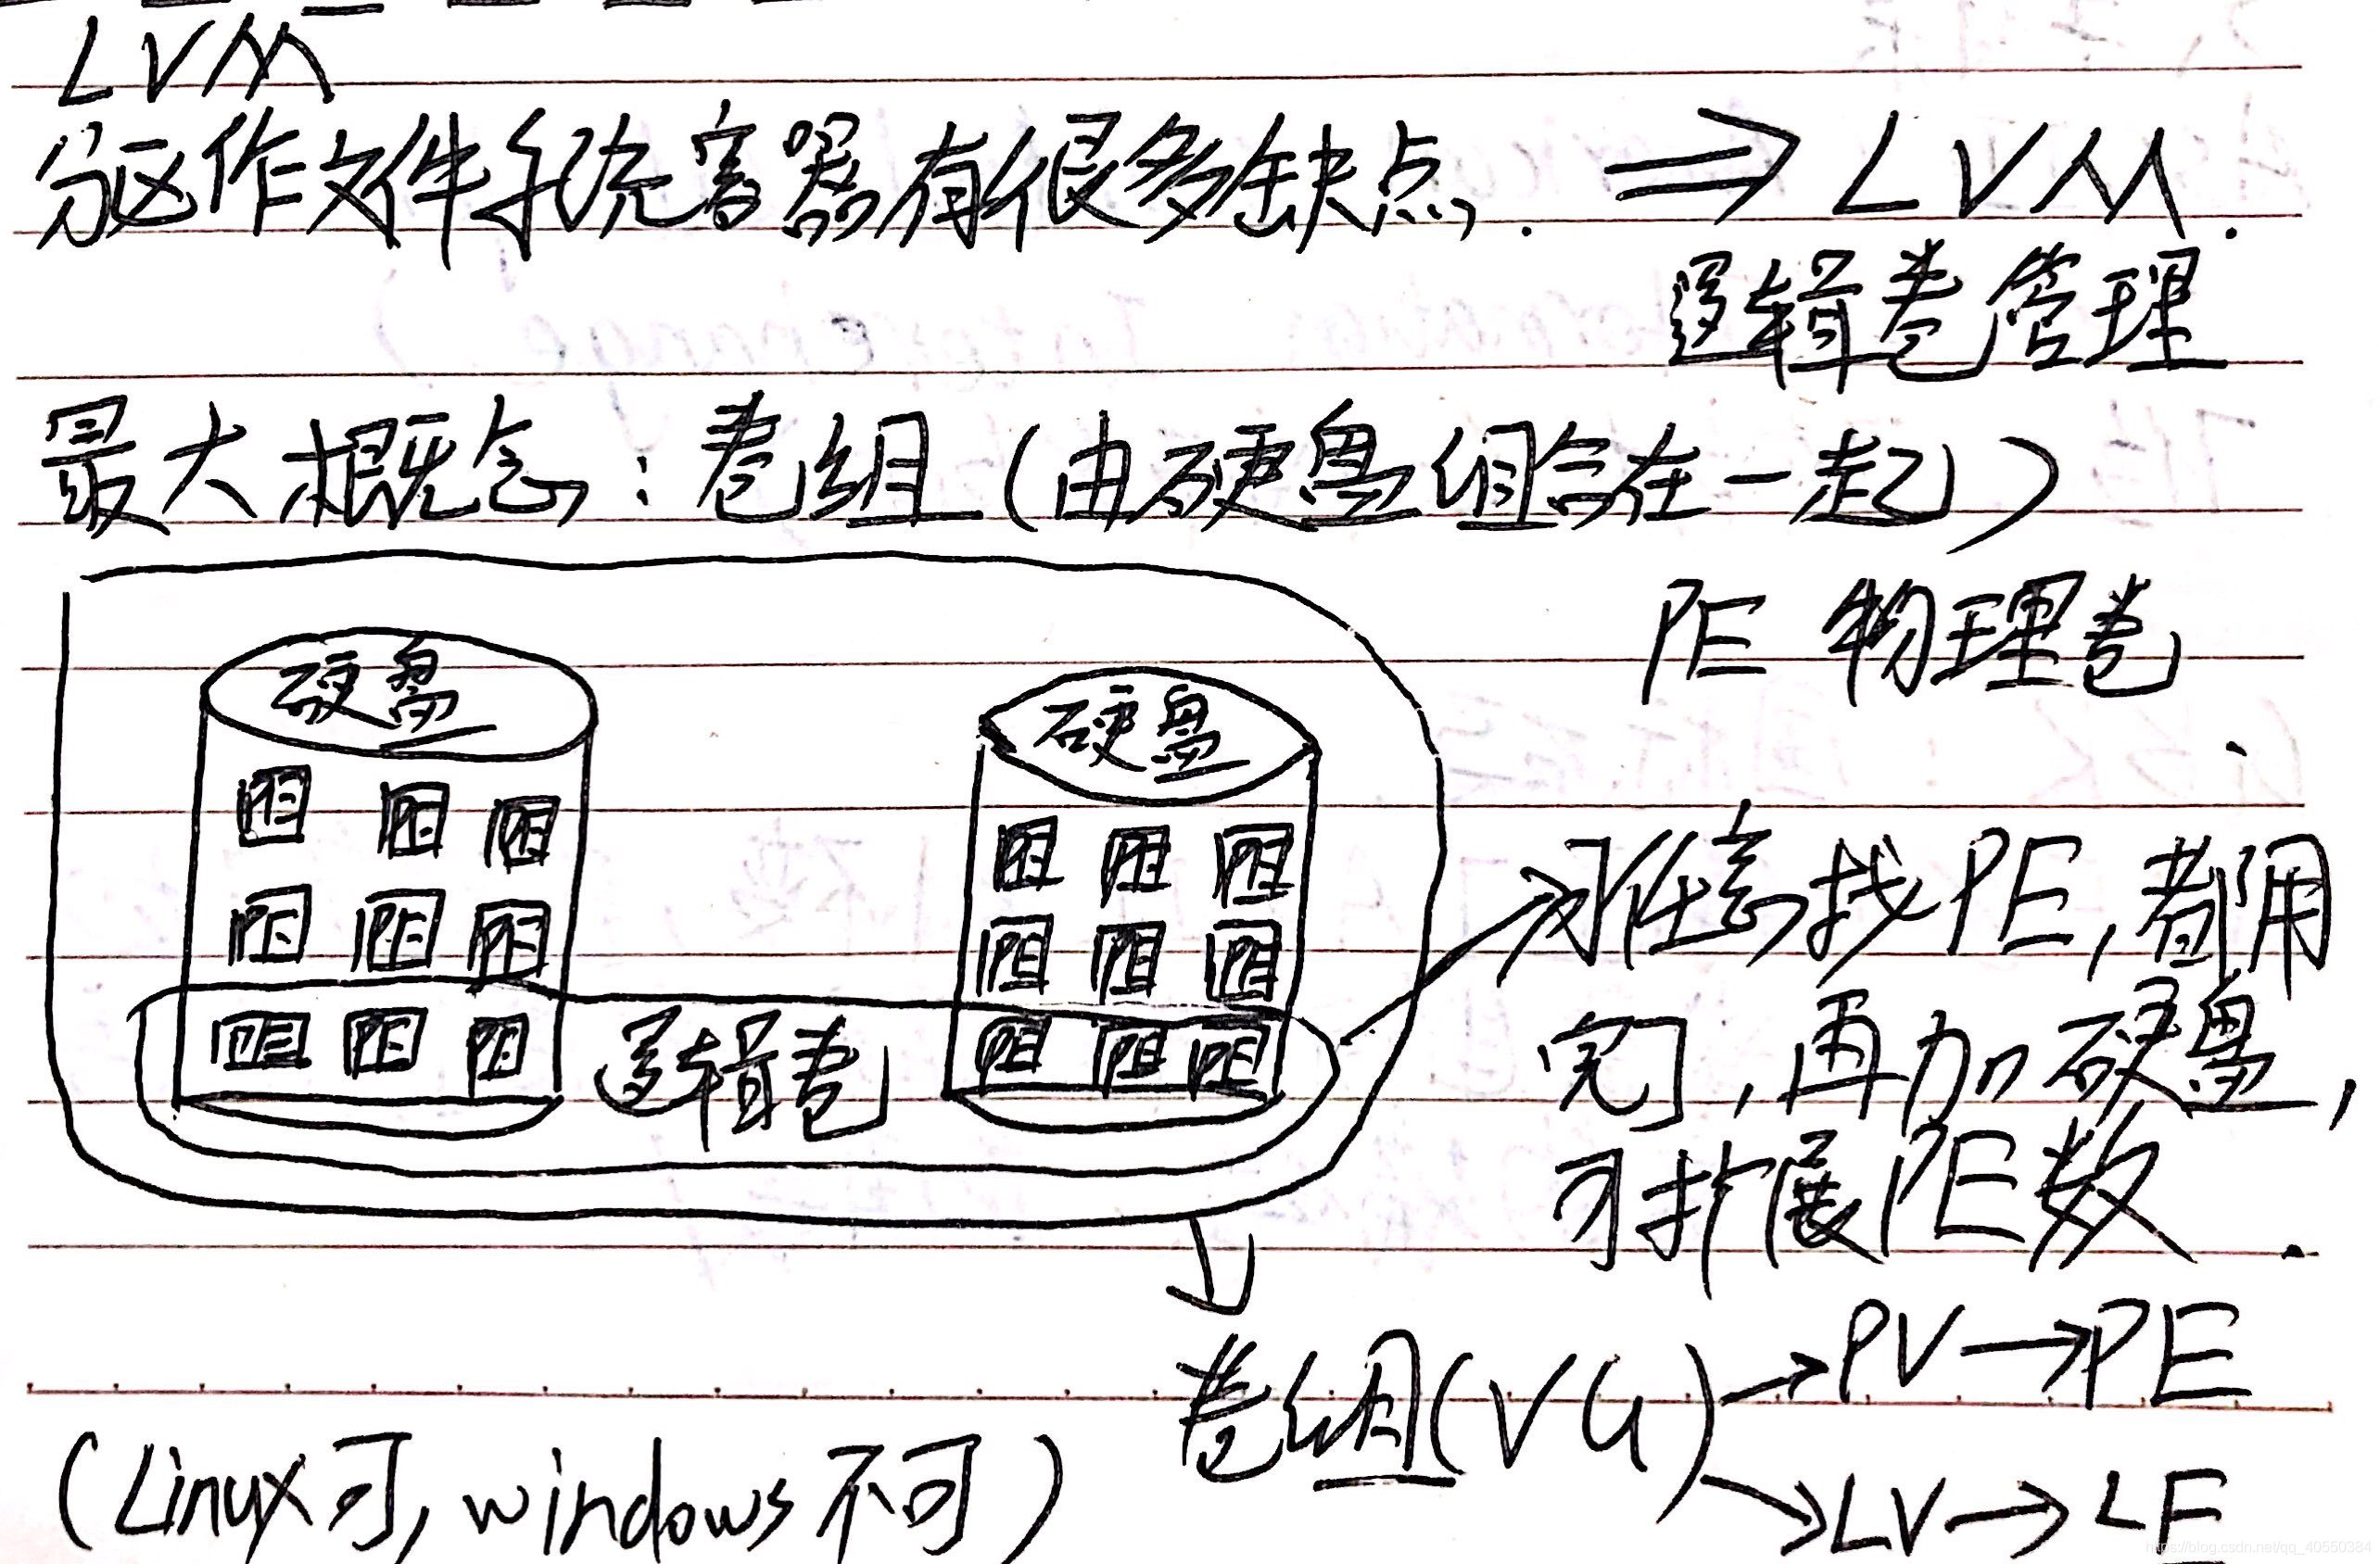 LVM
分区作文件系统容器有很多缺点. ⇒ LVM.
逻辑卷管理
最大概念:卷组(由硬盘组合在一起)
PE 物理卷.
硬盘 硬盘
PE PE PE PE PE PE
PE PE PE PE PE PE
PE PE PE 逻辑卷 PE PE PE
→ 可任意找PE,都用
完了,再加硬盘,
可扩展PE数.
卷组(VG) → PV → PE
→ LV → LE
(Linux可, windows不可)
https://blog.csdn.net/qq_40550384